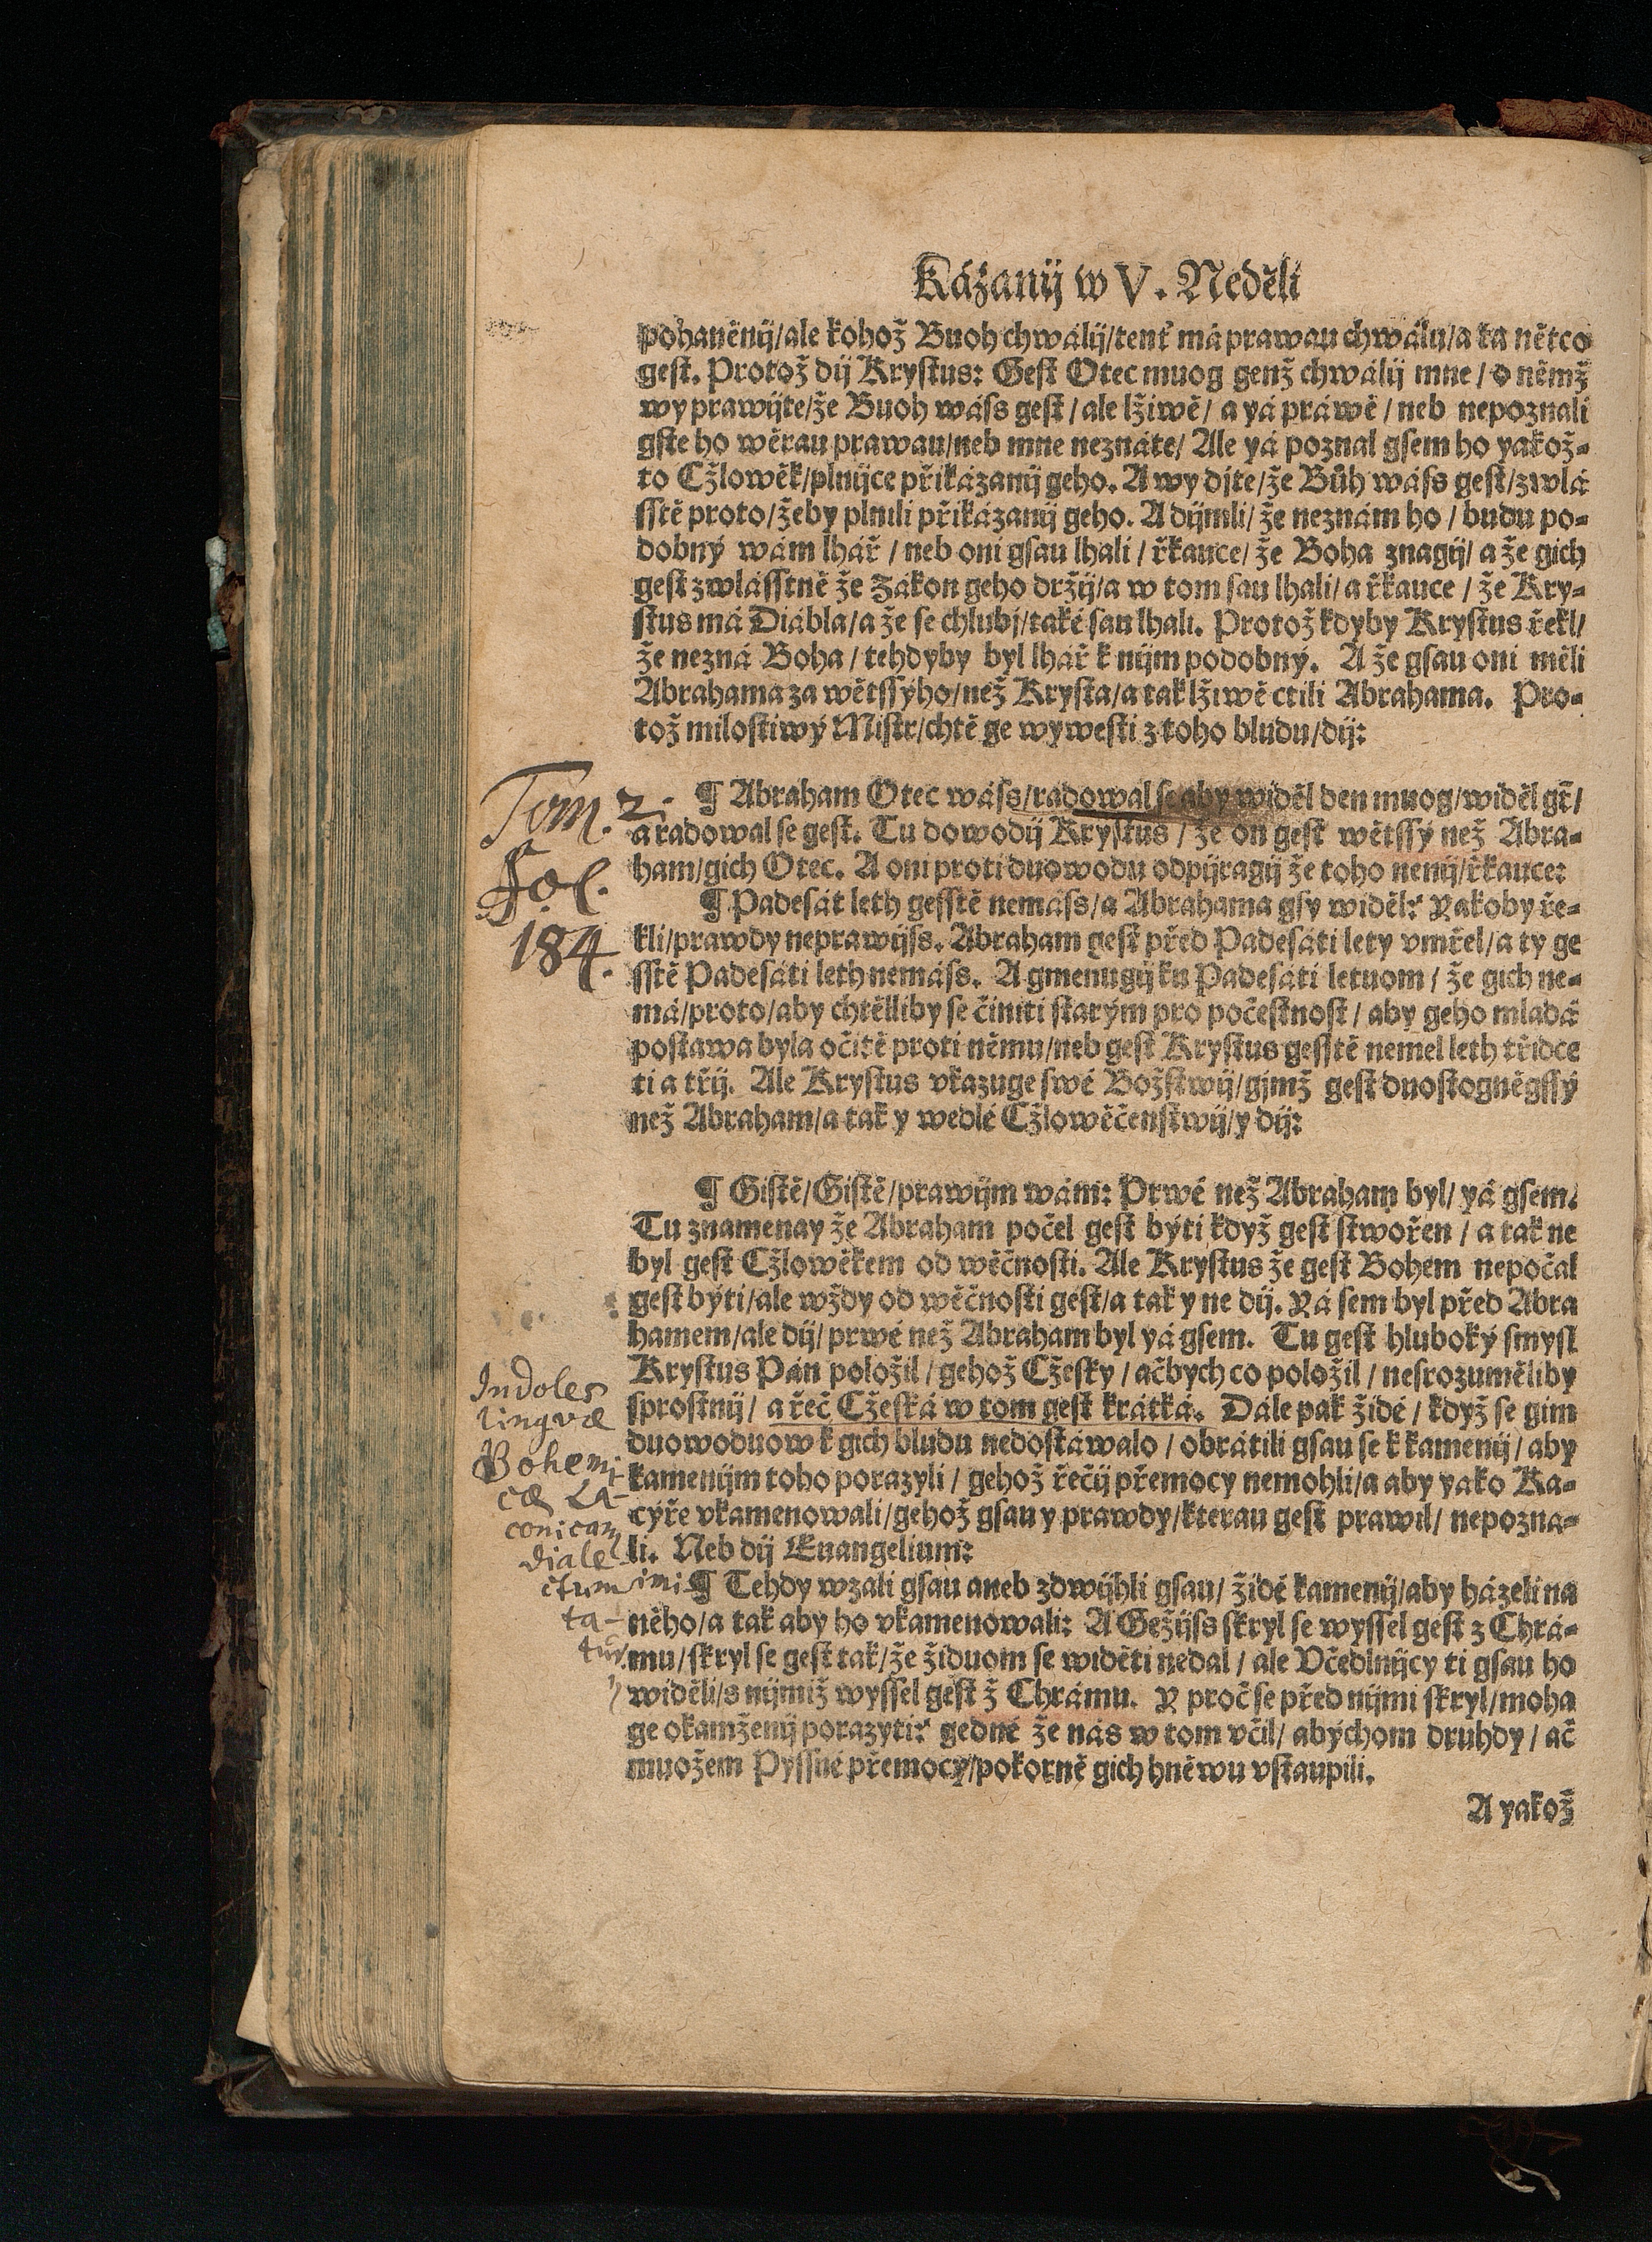 Kázanij w V. Neděli
pohaněnij/ale kohož Buoh chwálij/tenť má prawau chwálu/a ta nětco
gest. Protož dij Krystus: Gest Otec muog genž chwálij mne/o němž
wy prawijte/že Buoh wáss gest/ale lžiwě/a yá práwě/neb nepoznali
gste ho wěrau prawau/neb mne neznáte/Ale yá poznal gsem ho yakož-
to Cžlowěk/plnijce přikázanij geho. A wy djte/že Bůh wáss gest/zwlá
sstě proto/žeby plnili přikázanij geho. A dijmli/že neznám ho/budu po-
dobný wám lhář/neb oni gsau lhali/řkauce/že Boha znagij/a že gich
gest zwlásstně že Zákon geho držij/a w tom sau lhali/a řkauce/že Kry-
stus má Diábla/a že se chlubj/také sau lhali. Protož kdyby Krystus řekl/
že nezná Boha/tehdyby byl lhář k nijm podobný. A že gsau oni měli
Abrahama za wětssýho/než Krysta/a tak lžiwě ctili Abrahama. Pro-
tož milostiwý Mistr/chtě ge wywesti z toho bludu/dij:
Tom. 2.
Fol.
184.
¶ Abraham Otec wáss/radowal se aby widěl den muog/widěl gt̃/
a radowal se gest. Tu dowodij Krystus/že on gest wětssý než Abra-
ham/gich Otec. A oni proti duowodu odpijragij že toho nenij/řkauce:
¶ Padesát leth gesstě nemáss/a Abrahama gsy widěl? Yakoby ře-
kli/prawdy neprawijss. Abraham gest před Padesáti lety vmřel/a ty ge
sstě Padesáti leth nemáss. A gmenugij ku Padesáti letuom/že gich ne-
má/proto/aby chtělliby se činiti starým pro počestnost/aby geho mladá
postawa byla očitě proti němu/neb gest Krystus gesstě nemel leth třidce
ti a třij. Ale Krystus vkazuge swé Božstwij/gjmž gest duostogněgssý
než Abraham/a tak y wedlé Cžlowěčenstwij/y dij:
¶ Gistě/Gistě/prawijm wám: Prwé než Abraham byl/yá gsem.
Tu znamenay že Abraham počel gest býti když gest stwořen/a tak ne
byl gest Cžlowěkem od wěčnosti. Ale Krystus že gest Bohem nepočal
gest býti/ale wždy od wěčnosti gest/a tak y ne dij. Yá sem byl před Abra
hamem/ale dij/prwé než Abraham byl yá gsem. Tu gest hluboký smysl
Krystus Pán položil/gehož Cžesky/ačbych co položil/nesrozuměliby
sprostnij/a řeč Cžeská w tom gest krátká. Dále pak židé/když se gim
duowoduow k gich bludu nedostáwalo/obrátili gsau se k kamenij/aby
kamenijm toho porazyli/gehož řečij přemocy nemohli/a aby yako Ka-
cýře vkamenowali/gehož gsau y prawdy/kterau gest prawil/nepozna-
li. Neb dij Euangelium:
Indoles
lingvæ
Bohemi-
cæ La-
conicam
diale-
ctum imi
ta-
tur.
¶ Tehdy wzali gsau aneb zdwijhli gsau/židé kamenij/aby házeli na
něho/a tak aby ho vkamenowali: A Gežijss skryl se wyssel gest z Chrá-
mu/skryl se gest tak/že židuom se widěti nedal/ale Včedlnijcy ti gsau ho
widěli/s nijmiž wyssel gest z Chrámu. Y proč se před nijmi skryl/moha
ge okamženij porazyti? gedné že nás w tom včil/abychom druhdy/ač
muožem Pyssné přemocy/pokorně gich hněwu vstaupili.
A yakož